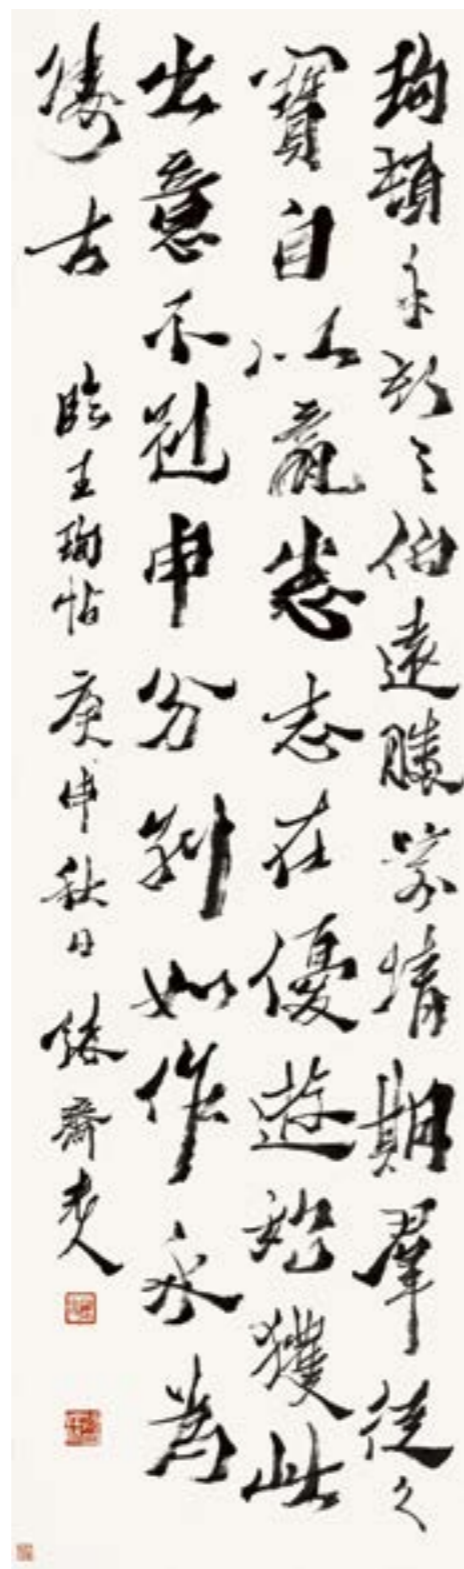 珣頓首頓首伯遠勝業情期羣從之
寶自以羸患志在優遊始獲此
出意不剋申分別如作永為
疇古 臨王珣帖 庚申秋日 齋老人